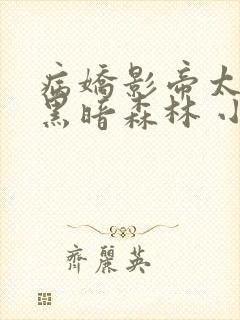 病嬌影帝太
黑暗森林 小
齊麗英